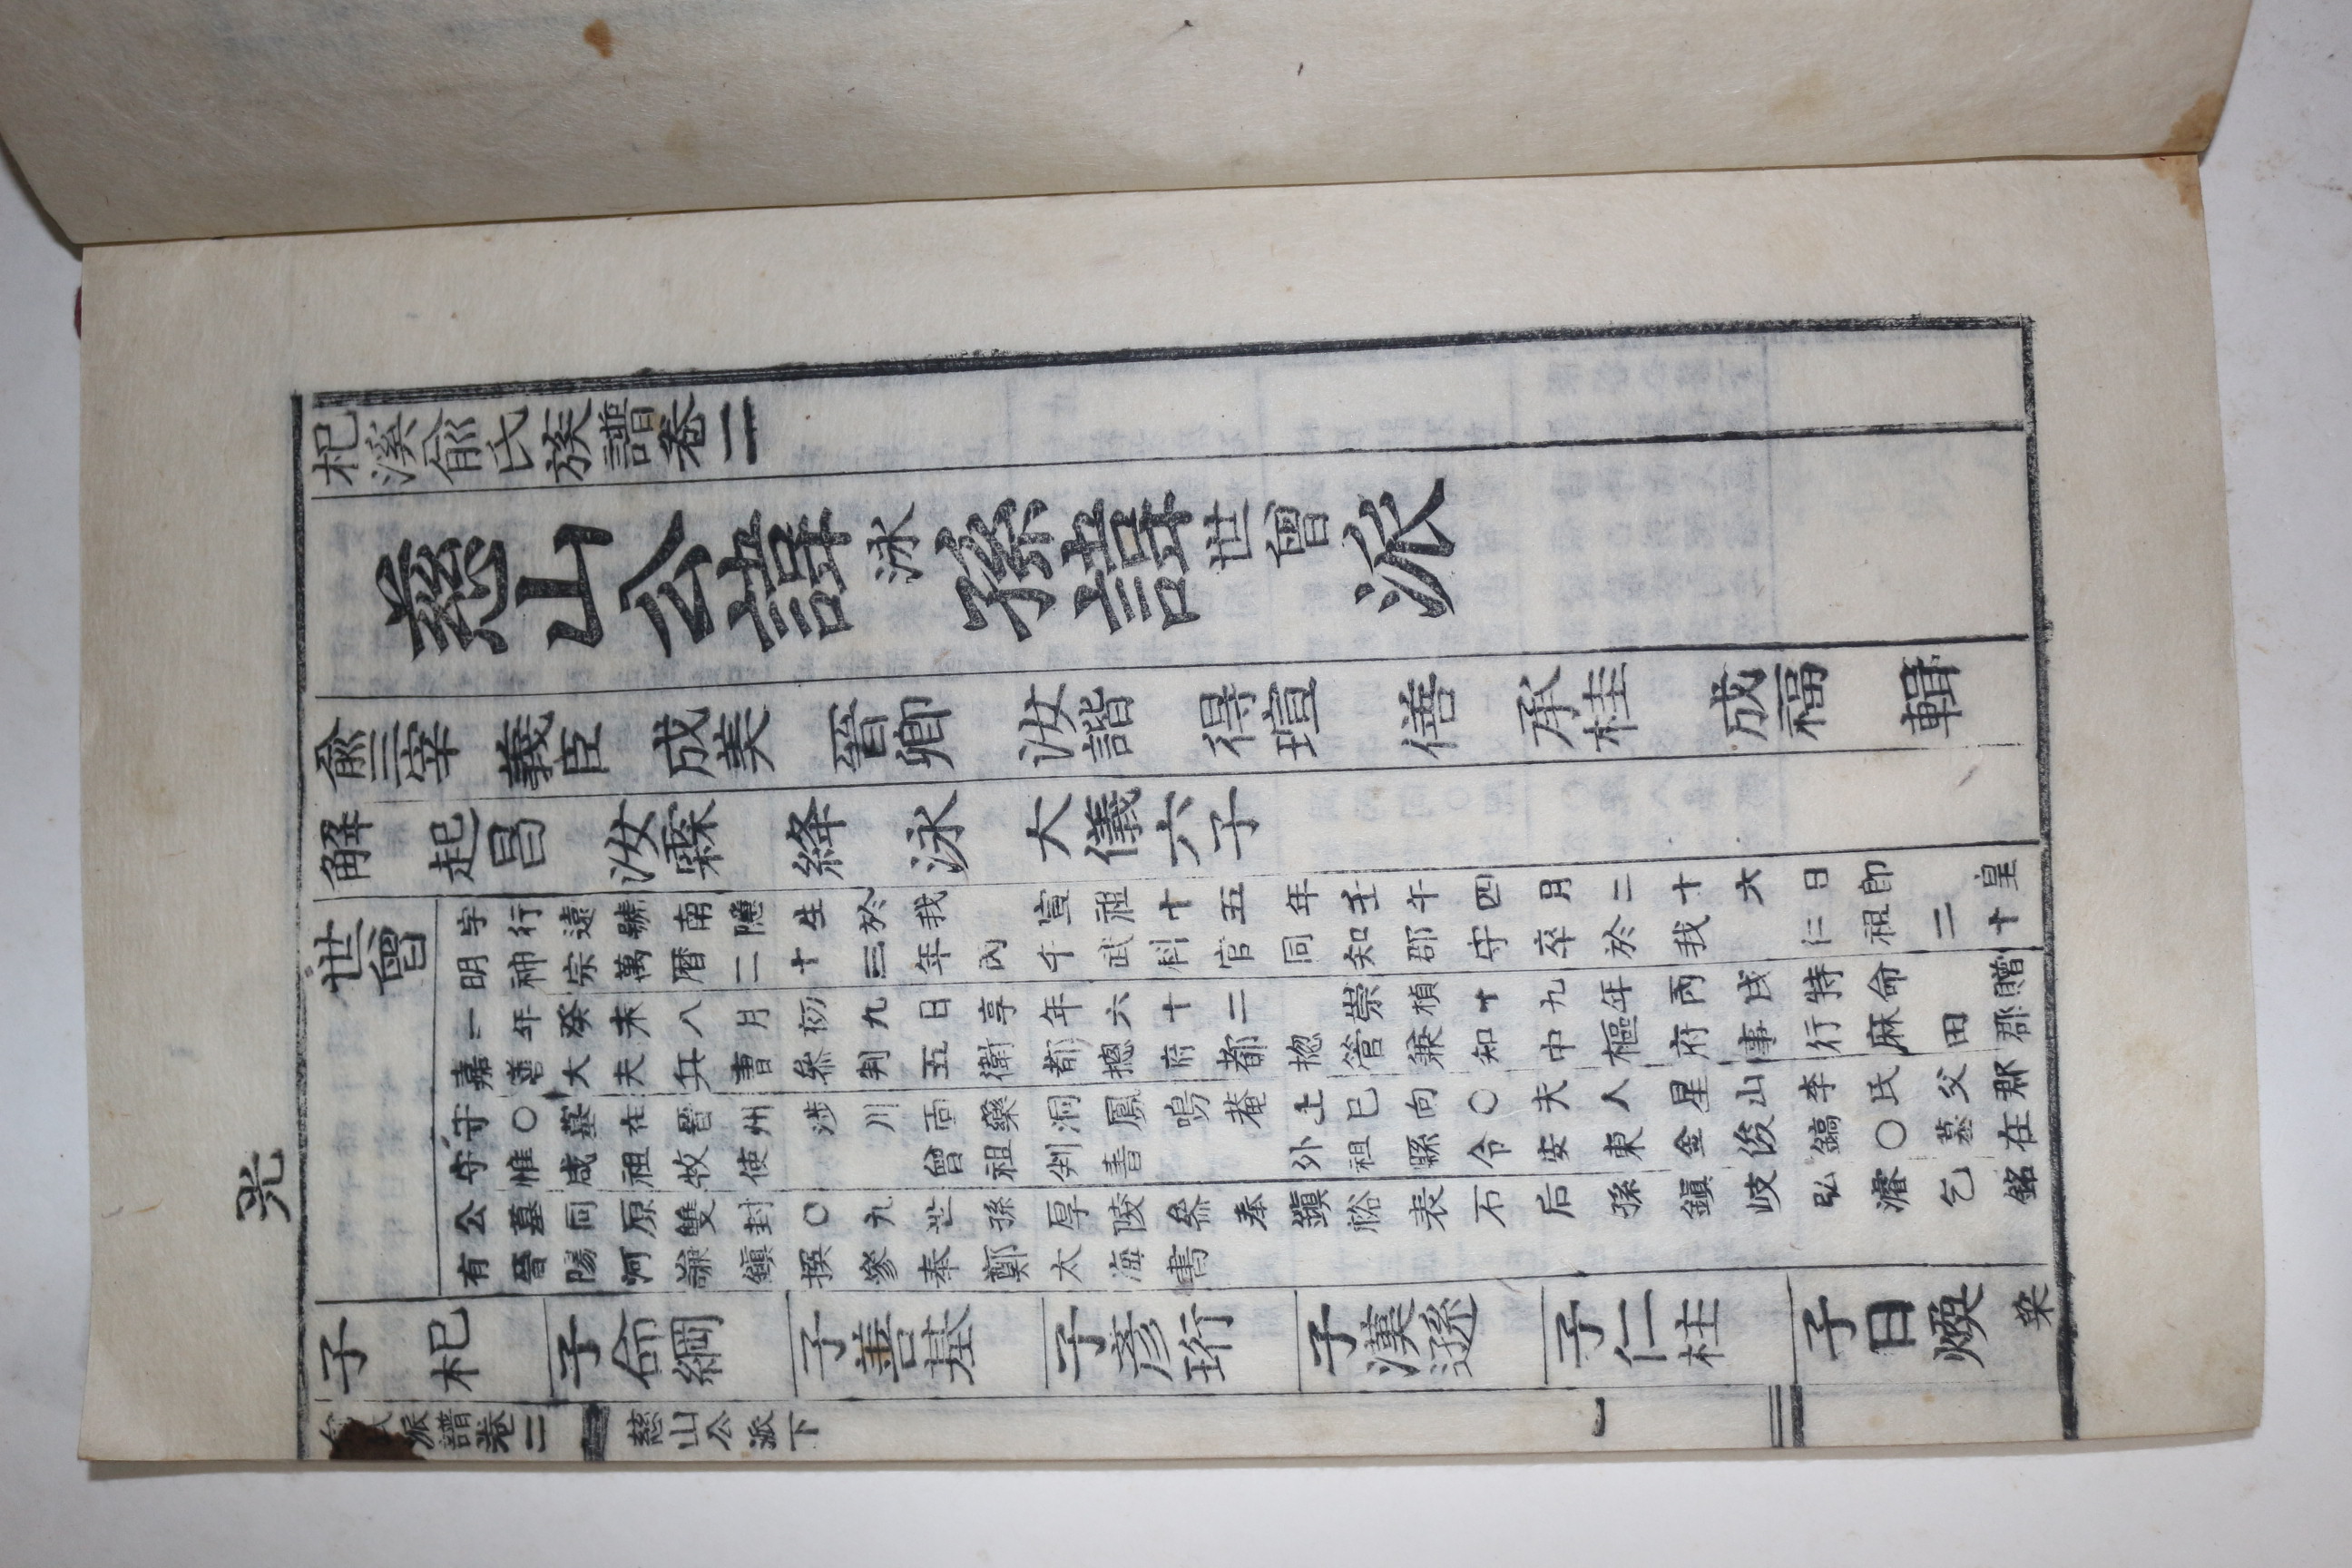 杞溪兪氏族譜卷二
慈山公諱泳孫諱世曾派
兪三宰 義臣 成美 晉卿 汝諧 得瑄 僐 承桂 成福 輯
解 起昌 汝霖 絳 泳 大儀六子
光
世曾
字行遠號南隱生於我 宣祖十五年壬午四月二十六日卽 皇
明神宗萬曆二十三年丙午武科官同知郡守卒於我 仁祖二十
一年癸未八月初九日享年六十二 崇楨十九年丙戌特命 贈
嘉善大夫兵曹叅判五衛都摠府都摠管兼知中樞府事行麻田郡
守○墓在晋州涉川面藥洞鳳鳴菴上巳向○夫人星山李氏父郡
守惟咸祖牧使 曾祖判書 外祖縣令安東金俊鎬○墓在
公墓同原雙封○九世孫厚陵叅奉鎭裕表石后孫鎭岐弘濬乞銘
有晉陽河謙鎭撰參奉鄭太海書
子杞
子命綱
子善基
子彥珩
子漢遜
子仁柱
子日煥 榮
氏派譜卷二 慈山公派下 一